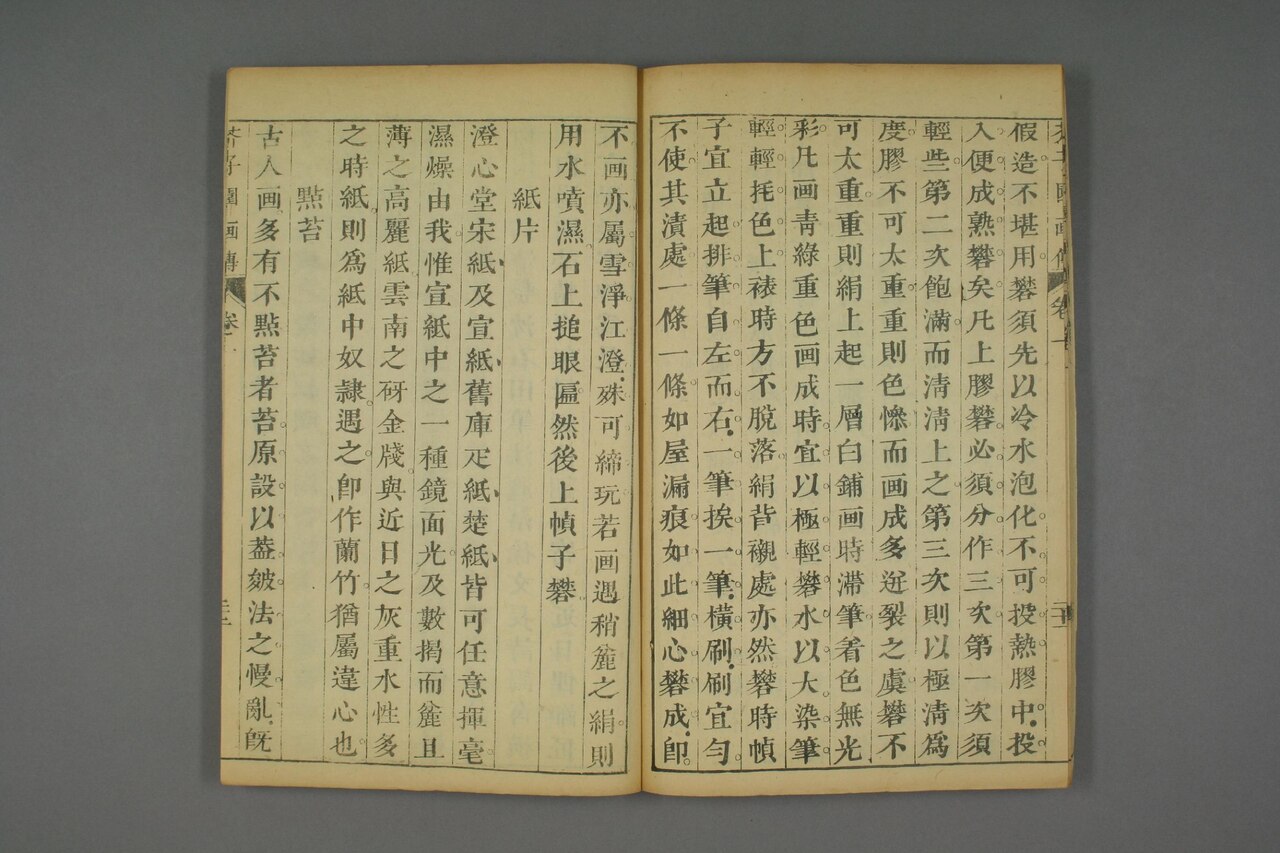 假造不堪用礬須先以冷水泡化不可投熱膠中投
入便成熟礬矣凡上膠礬必須分作三次第一次須
輕些第二次飽滿而淸淸上之第三次則以極淸爲
度膠不可太重重則色慘而画成多迸裂之虞礬不
可太重重則絹上起一層白鋪画時滯筆着色無光
彩凡画靑綠重色画成時宜以極輕礬水以大染筆
輕輕托色上裱時方不脫落絹背襯處亦然礬時幀
子宜立起排筆自左而右一筆挨一筆橫刷刷宜勻
不使其漬處一條一條如屋漏痕如此細心礬成卽
不画亦屬雪淨江澄殊可締玩若画遇稍麄之絹則
用水噴濕石上搥眼匾然後上幀子礬
紙片
澄心堂宋紙及宣紙舊庫疋紙楚紙皆可任意揮毫
濕燥由我惟宣紙中之一種鏡面光及數揭而麄且
薄之高麗紙雲南之砑金牋與近日之灰重水性多
之時紙則爲紙中奴隷遇之卽作蘭竹猶屬違心也
點苔
古人画多有不點苔者苔原設以葢皴法之慢亂旣
芥子園画傳 卷一